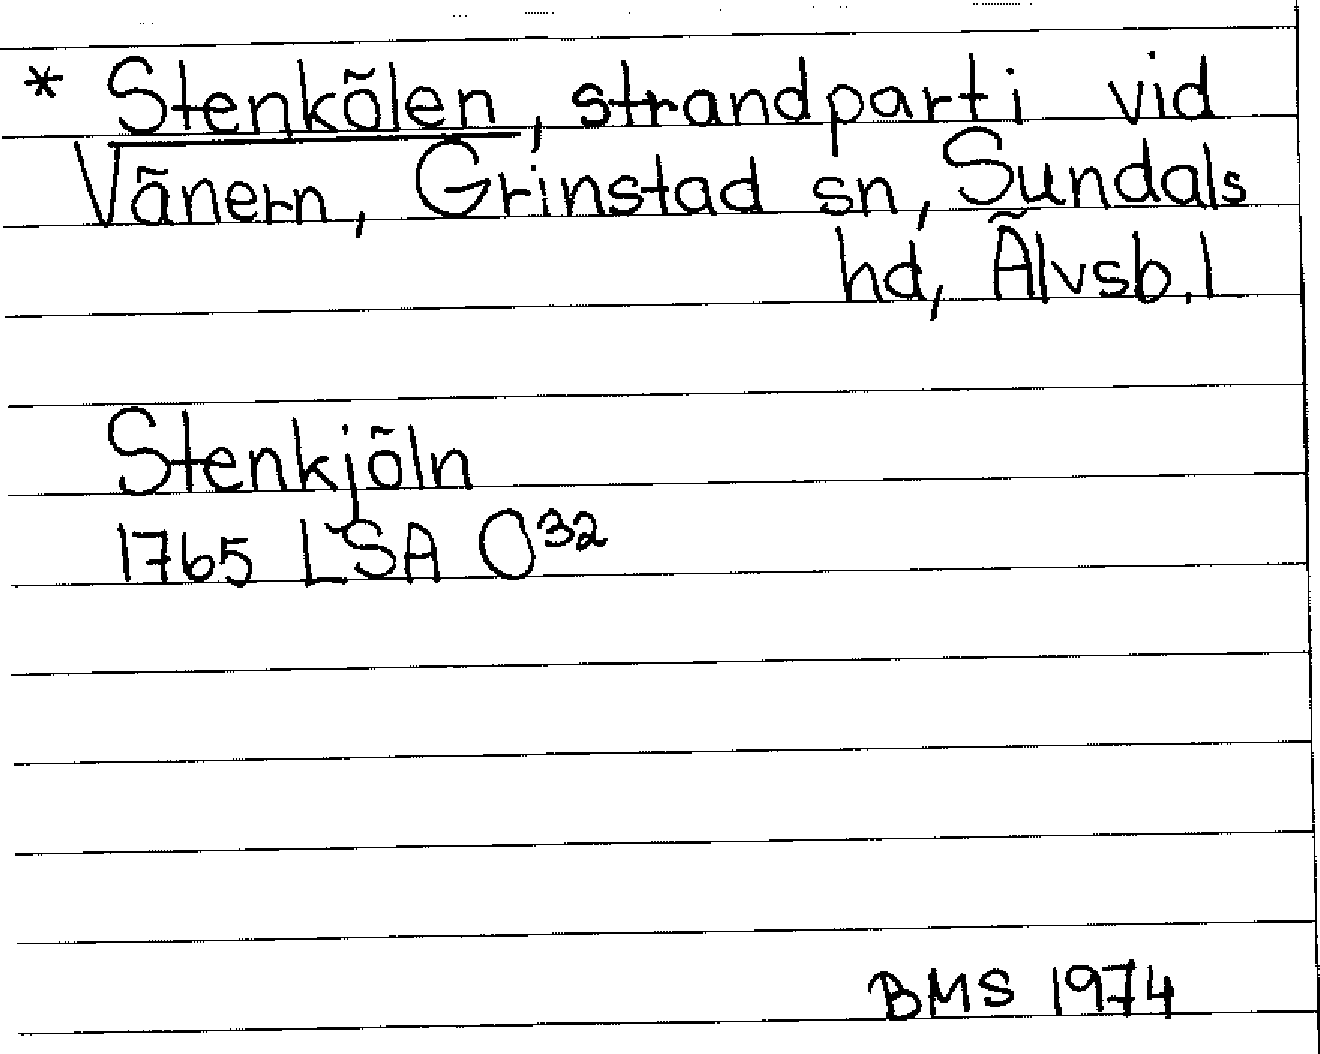 * Stenkölen, strandparti vid
Vänern, Grinstad sn, Sundals
hd, Älvsb. l
Stenkjöln
1765 LSA O³²
BMS 1974